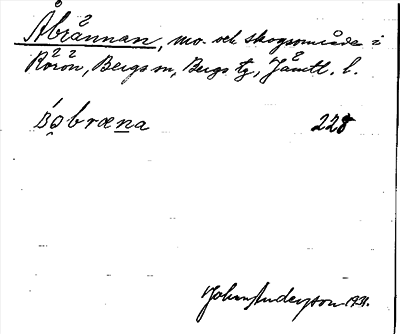 Åbrännan, mo- och skogsområde i
Rörön, Bergs sn, Bergs tg, Jämtl. l.
Bobræna 228
John Anderson 1931.